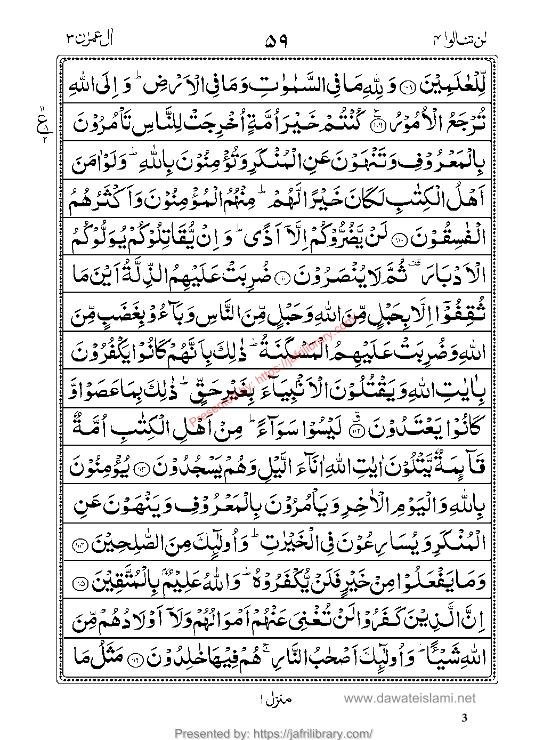 لن تنالوا ۴ ۵۹ اٰل عمرٰن ۳
لِّلْعٰلَمِیْنَ ﴿۱۰۸﴾ وَ لِلّٰهِ مَا فِی السَّمٰوٰتِ وَ مَا فِی الْاَرْضِ ؕ وَ اِلَی اللّٰهِ
تُرْجَعُ الْاُمُوْرُ ﴿۱۰۹﴾ كُنْتُمْ خَیْرَ اُمَّةٍ اُخْرِجَتْ لِلنَّاسِ تَاْمُرُوْنَ
بِالْمَعْرُوْفِ وَ تَنْهَوْنَ عَنِ الْمُنْكَرِ وَ تُؤْمِنُوْنَ بِاللّٰهِ ؕ وَ لَوْ اٰمَنَ
اَهْلُ الْكِتٰبِ لَكَانَ خَیْرًا لَّهُمْ ؕ مِنْهُمُ الْمُؤْمِنُوْنَ وَ اَكْثَرُهُمُ
الْفٰسِقُوْنَ ﴿۱۱۰﴾ لَنْ یَّضُرُّوْكُمْ اِلَّاۤ اَذًی ؕ وَ اِنْ یُّقَاتِلُوْكُمْ یُوَلُّوْكُمُ
الْاَدْبَارَ ۫ ثُمَّ لَا یُنْصَرُوْنَ ﴿۱۱۱﴾ ضُرِبَتْ عَلَیْهِمُ الذِّلَّةُ اَیْنَ مَا
ثُقِفُوْۤا اِلَّا بِحَبْلٍ مِّنَ اللّٰهِ وَ حَبْلٍ مِّنَ النَّاسِ وَ بَآءُوْ بِغَضَبٍ مِّنَ
اللّٰهِ وَ ضُرِبَتْ عَلَیْهِمُ الْمَسْكَنَةُ ؕ ذٰلِكَ بِاَنَّهُمْ كَانُوْا یَكْفُرُوْنَ
بِاٰیٰتِ اللّٰهِ وَ یَقْتُلُوْنَ الْاَنْۢبِیَآءَ بِغَیْرِ حَقٍّ ؕ ذٰلِكَ بِمَا عَصَوْا وَّ
كَانُوْا یَعْتَدُوْنَ ﴿۱۱۲﴾ لَیْسُوْا سَوَآءً ؕ مِنْ اَهْلِ الْكِتٰبِ اُمَّةٌ
قَآىِٕمَةٌ یَّتْلُوْنَ اٰیٰتِ اللّٰهِ اٰنَآءَ الَّیْلِ وَ هُمْ یَسْجُدُوْنَ ﴿۱۱۳﴾ یُؤْمِنُوْنَ
بِاللّٰهِ وَ الْیَوْمِ الْاٰخِرِ وَ یَاْمُرُوْنَ بِالْمَعْرُوْفِ وَ یَنْهَوْنَ عَنِ
الْمُنْكَرِ وَ یُسَارِعُوْنَ فِی الْخَیْرٰتِ ؕ وَ اُولٰٓىِٕكَ مِنَ الصّٰلِحِیْنَ ﴿۱۱۴﴾
وَ مَا یَفْعَلُوْا مِنْ خَیْرٍ فَلَنْ یُّكْفَرُوْهُ ؕ وَ اللّٰهُ عَلِیْمٌۢ بِالْمُتَّقِیْنَ ﴿۱۱۵﴾
اِنَّ الَّذِیْنَ كَفَرُوْا لَنْ تُغْنِیَ عَنْهُمْ اَمْوَالُهُمْ وَ لَاۤ اَوْلَادُهُمْ مِّنَ
اللّٰهِ شَیْـًٔا ؕ وَ اُولٰٓىِٕكَ اَصْحٰبُ النَّارِ ۚ هُمْ فِیْهَا خٰلِدُوْنَ ﴿۱۱۶﴾ مَثَلُ مَا
منزل ۱
www.dawateislami.net
3
Presented by: https://jafrilibrary.com/
Presented by: https://jafrilibrary.com/